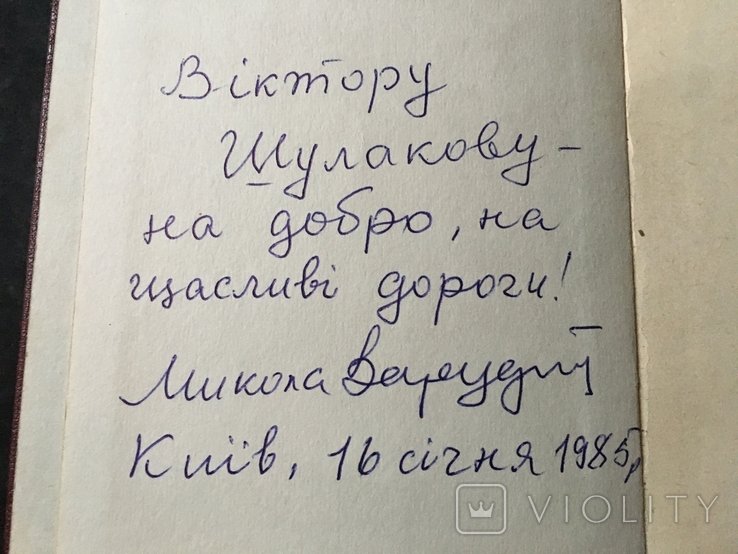 Віктору
Шулакову –
на добро, на
щасливі дороги!
Микола
Київ, 16 січня 1985 р.
VIOLITY